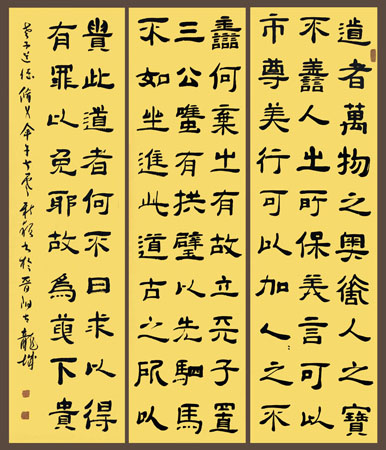 道者萬物之奧譱人之寶
不譱人之所保美言可以
市尊美行可以加人之不
譱何棄之有故立天子置
三公雖有拱璧以先駟馬
不如坐進此道古之所以
貴此道者何不曰求以得
有罪以免耶故為天下貴
老子道德 於晉陽古龍城